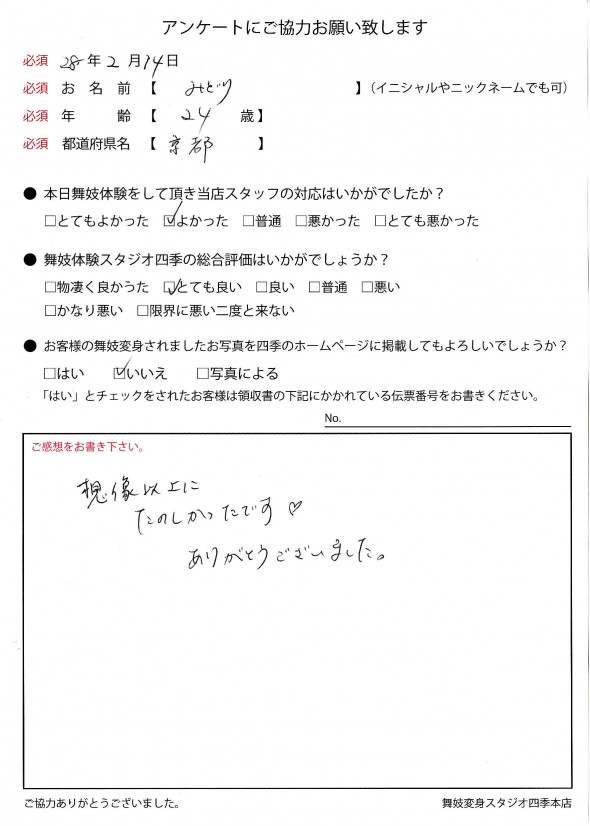 アンケートにご協力お願い致します
必須 28年2月14日
必須 お名前【 みどり 】（イニシャルやニックネームでも可）
必須 年齢【 24 歳】
必須 都道府県名【 京都 】
● 本日舞妓体験をして頂き当店スタッフの対応はいかがでしたか？
□とてもよかった ☑よかった □普通 □悪かった □とても悪かった
● 舞妓体験スタジオ四季の総合評価はいかがでしょうか？
□物凄く良かうた ☑とても良い □良い □普通 □悪い
□かなり悪い □限界に悪い二度と来ない
● お客様の舞妓変身されましたお写真を四季のホームページに掲載してもよろしいでしょうか？
□はい ☑いいえ □写真による
「はい」とチェックをされたお客様は領収書の下記にかかれている伝票番号をお書きください。
No.
ご感想をお書き下さい。
想像以上に
たのしかったです♡
ありがとうございました。
ご協力ありがとうございました。
舞妓変身スタジオ四季本店